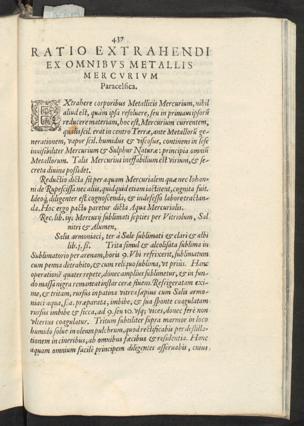 437
RATIO EXTRAHENDI
EX OMNIBVS METALLIS
MERCVRIVM
Paracelsica.
EXtrahere corporibus Metallicis Mercurium, nihil
aliud est, quàm ipsa resoluere, seu in primam ipsorũ
reducere materiam, hoc est, Mercurium currentem,
qualis scil. erat in centro Terræ, ante Metallorũ ge-
nerationem, vapor scil. humidus & viscosus, continens in sese
inuisibiliter Mercurium & Sulphur Naturæ; principia omniũ
Metallorum. Talis Mercurius ineffabilium est virium, & se-
creta diuina possidet.
Reductio dicta fit per aquam Mercurialem quæ nec Iohan-
ni de Rupescissa nec alijs, quidquid etiam iactitent, cognita fuit.
Ideoq; diligenter est cognoscenda, & indefesso labore tractan-
da. Hoc ergo pacto paretur dicta Aqua Mercurialis.
Rec. lib. iij. Mercurij sublimati septies per Vitriolum, Sal-
nitri & Alumen,
Salis armoniaci, ter à Sale sublimati & clari & albi
lib. j. ß. Trita simul & alcolisata sublima in
Sublimatorio per arenam, horis 9. Vbi refrixerit, sublimatum
cum penna detrahito, & cum reliquo sublima, vt prius. Hanc
operationẽ quater repete, donec amplius sublunetur, & in fun-
do massa nigra remaneat instar ceræ fluens. Refrigeratam exi-
me, & tritam, rursus in patina vitrea sæpius cum Salis armo-
niaci aqua, s. a. præparata, imbibe, & sua sponte coagulatam
rursus imbibe & sicca, ad 9. seu 10. vsq; vices, donec ferè non
vlterius coaguletur. Tritum subtiliter supra marmor in loco
humido solue in oleum pulchrum, quod rectificabis per destilla-
tionem in cineribus, ab omnibus fæcibus & residentia. Hanc
aquam omnium facilè principem diligenter asseruabis, cuius